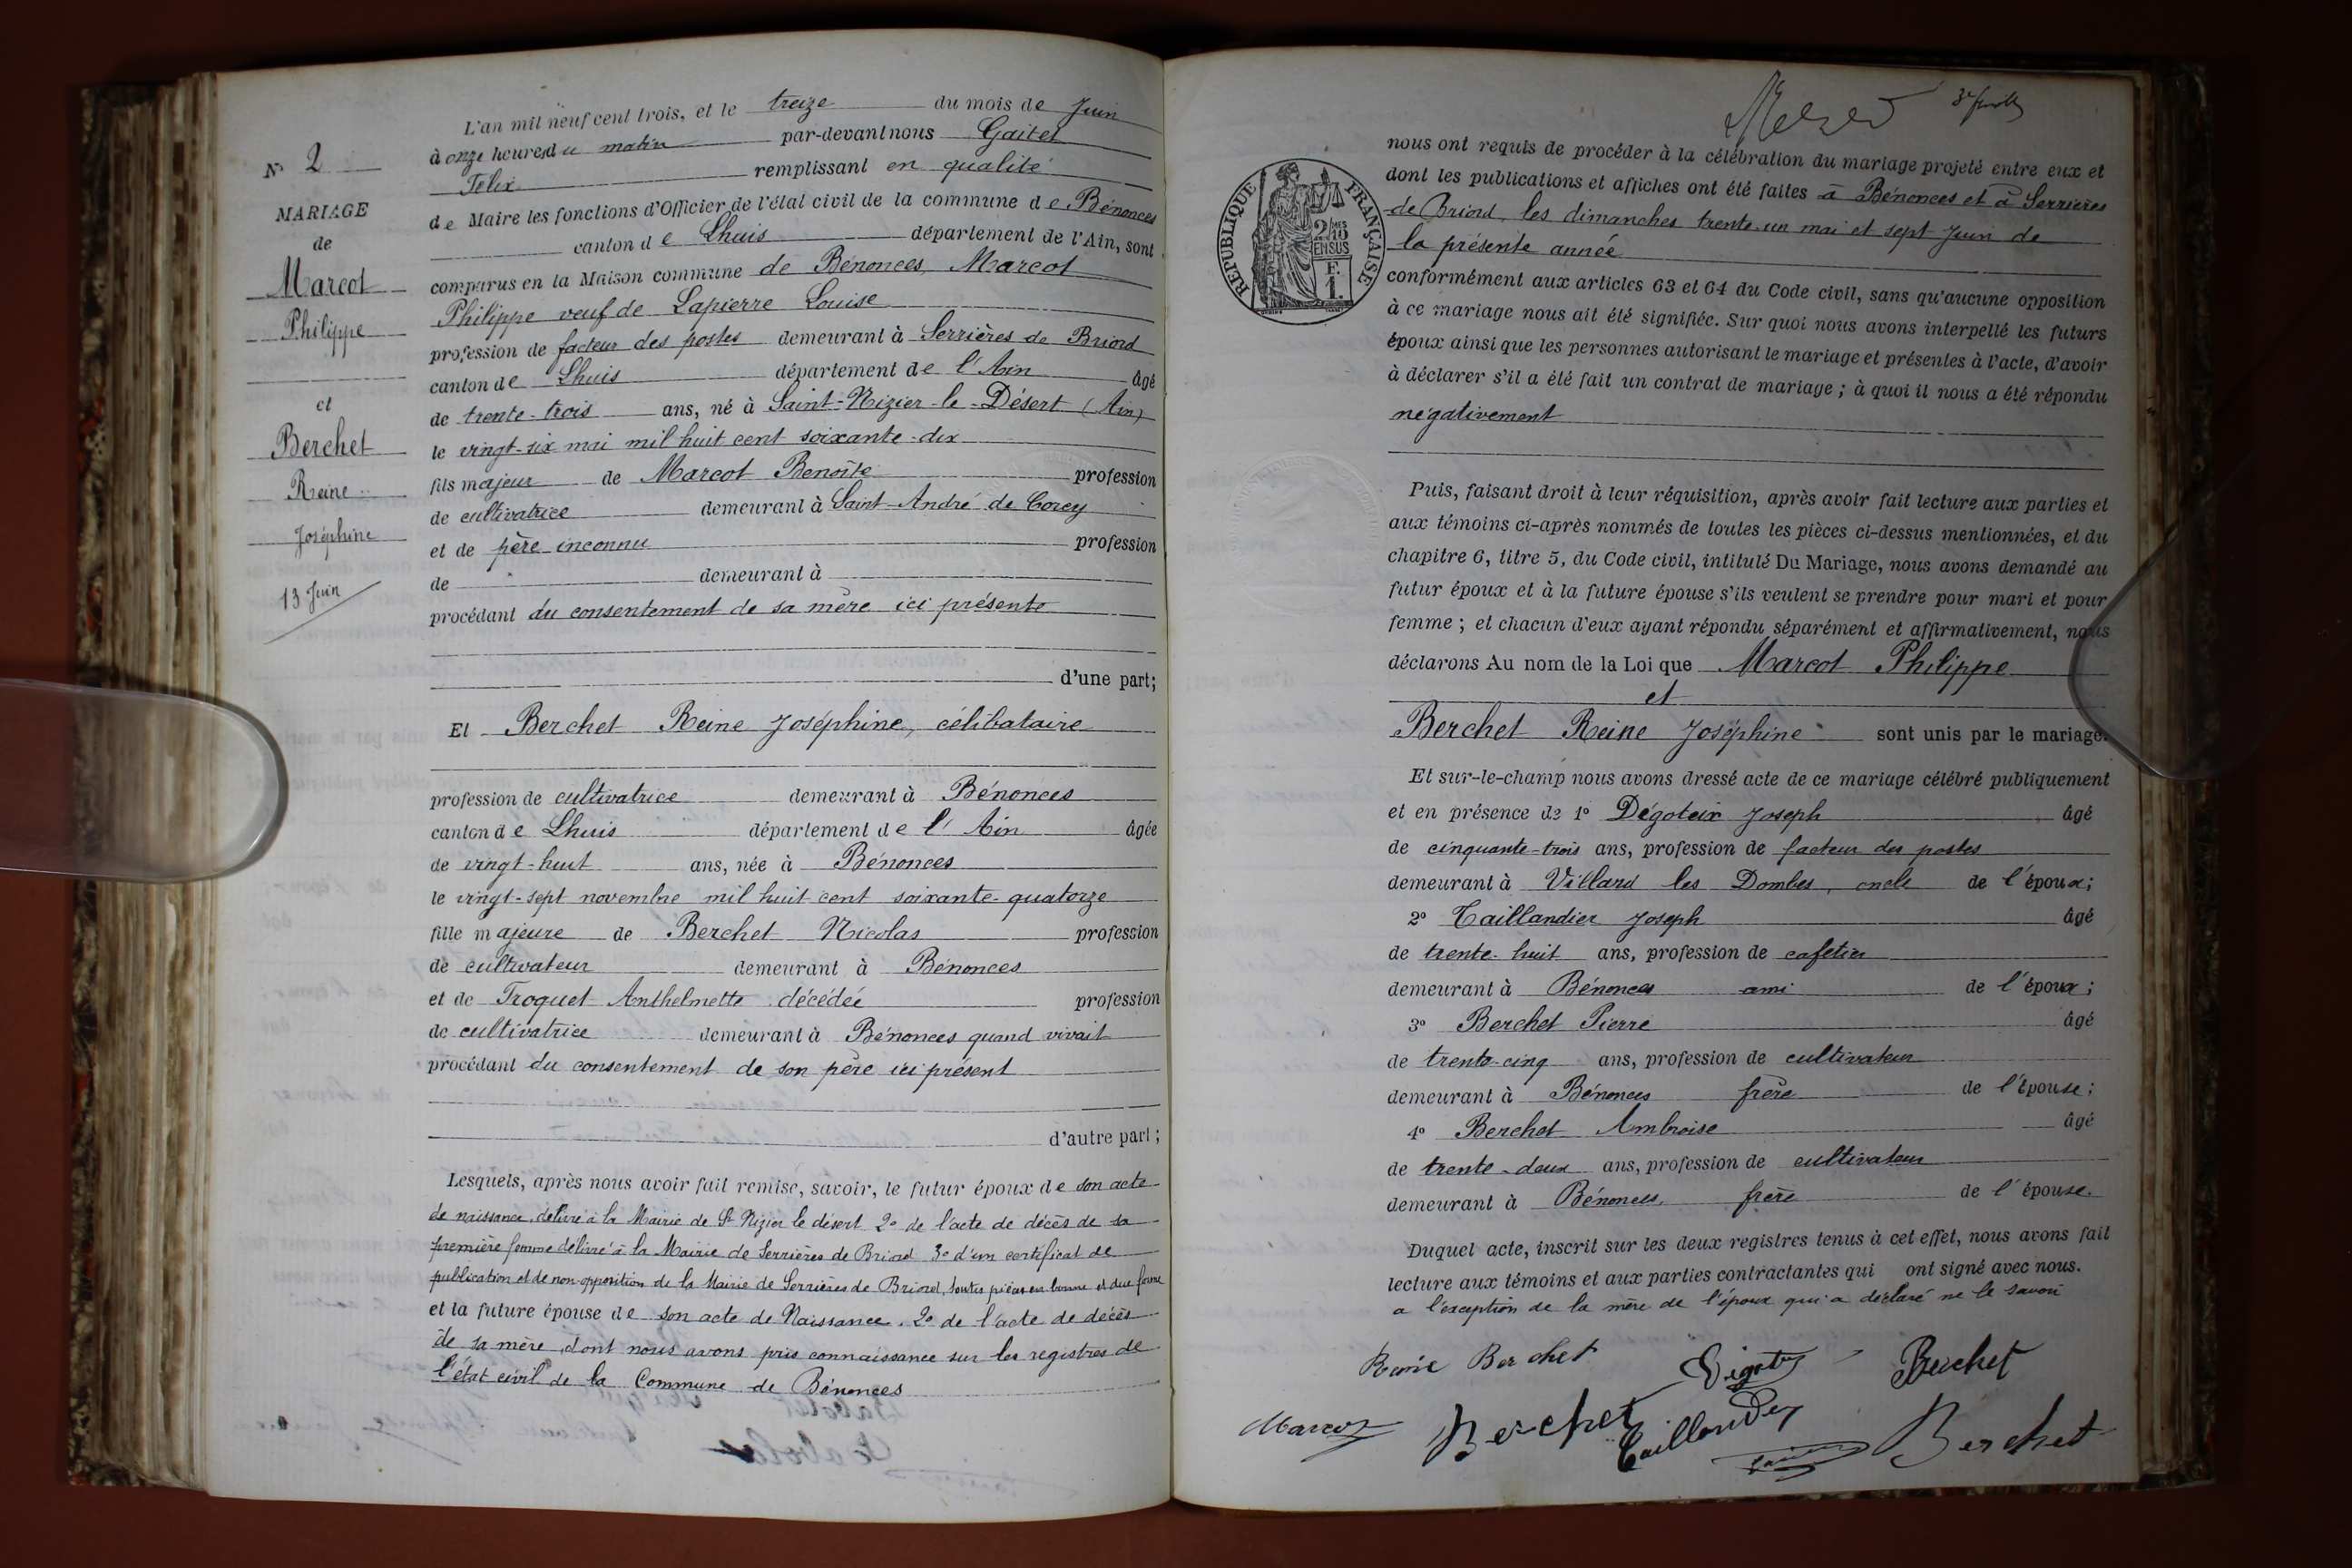 N° 2
MARIAGE
de
Marcot
Philippe
et
Berchet
Reine
Joséphine
13 Juin
L'an mil neuf cent trois, et le treize du mois de Juin
à onze heures du matin par-devant nous Gaitet
Félix remplissant en qualité
de Maire les fonctions d'Officier de l'état civil de la commune de Bénonces
canton de Lhuis département de l'Ain, sont
comparus en la Maison commune de Bénonces, Marcot
Philippe veuf de Lapierre Louise
profession de facteur des postes demeurant à Serrières de Briord
canton de Lhuis département de l'Ain âgé
de trente-trois ans, né à Saint-Nizier-le-Désert (Ain)
le vingt-six mai mil huit cent soixante-dix
fils majeur de Marcot Benoîte profession
de cultivatrice demeurant à Saint-André de Corcy
et de père inconnu profession
de demeurant à
procédant du consentement de sa mère ici présente
d'une part;
Et Berchet Reine Joséphine, célibataire
profession de cultivatrice demeurant à Bénonces
canton de Lhuis département de l'Ain âgée
de vingt-huit ans, née à Bénonces
le vingt-sept novembre mil huit cent soixante-quatorze
fille majeure de Berchet Nicolas profession
de cultivateur demeurant à Bénonces
et de Troquet Anthelmette décédée profession
de cultivatrice demeurant à Bénonces quand vivait
procédant du consentement de son père ici présent
d'autre part;
Lesquels, après nous avoir fait remise, savoir, le futur époux de son acte
de naissance, délivré à la Mairie de St Nizier le désert 2° de l'acte de décès de sa
première femme délivré à la Mairie de Serrières de Briord 3° d'un certificat de
publication et de non-opposition de la Mairie de Serrières de Briord, toutes pièces en bonne et due forme
et la future épouse de son acte de Naissance. 2° de l'acte de décès
de sa mère, dont nous avons pris connaissance sur les registres de
l'état civil de la Commune de Bénonces
REPUBLIQUE FRANÇAISE
2/10 EN SUS
F.
1.
nous ont requis de procéder à la célébration du mariage projeté entre eux et
dont les publications et affiches ont été faites à Bénonces et à Serrières
de Briord, les dimanches trente-un mai et sept Juin de
la présente année
conformément aux articles 63 et 64 du Code civil, sans qu'aucune opposition
à ce mariage nous ait été signifiée. Sur quoi nous avons interpellé les futurs
époux ainsi que les personnes autorisant le mariage et présentes à l'acte, d'avoir
à déclarer s'il a été fait un contrat de mariage; à quoi il nous a été répondu
négativement
Puis, faisant droit à leur réquisition, après avoir fait lecture aux parties et
aux témoins ci-après nommés de toutes les pièces ci-dessus mentionnées, et du
chapitre 6, titre 5, du Code civil, intitulé Du Mariage, nous avons demandé au
futur époux et à la future épouse s'ils veulent se prendre pour mari et pour
femme; et chacun d'eux ayant répondu séparément et affirmativement, nous
déclarons Au nom de la Loi que Marcot Philippe
et
Berchet Reine Joséphine sont unis par le mariage.
Et sur-le-champ nous avons dressé acte de ce mariage célébré publiquement
et en présence de 1° Dégoteix Joseph âgé
de cinquante-trois ans, profession de facteur des postes
demeurant à Villard les Dombes, oncle de l'époux;
2° Taillandier Joseph âgé
de trente-huit ans, profession de cafetier
demeurant à Bénonces ami de l'époux;
3° Berchet Pierre âgé
de trente-cinq ans, profession de cultivateur
demeurant à Bénonces frère de l'épouse;
4° Berchet Ambroise âgé
de trente-deux ans, profession de cultivateur
demeurant à Bénonces, frère de l'épouse.
Duquel acte, inscrit sur les deux registres tenus à cet effet, nous avons fait
lecture aux témoins et aux parties contractantes qui ont signé avec nous.
a l'exception de la mère de l'époux qui a déclaré ne le savoir
Berchet Berchet
Marcot Berchet Taillandier Berchet